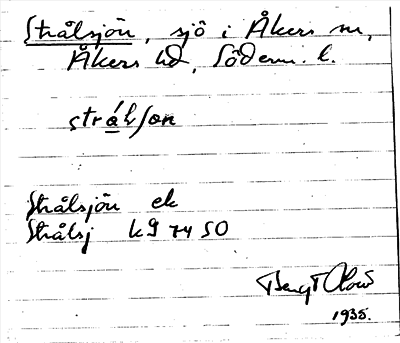 Strålsjön, sjö i Åkers sn,
Åkers hd, Söderm. l.
strálʃɷn
Strålsjön ek
Strålsj k9 74 SO
Bengt Olow
1935.